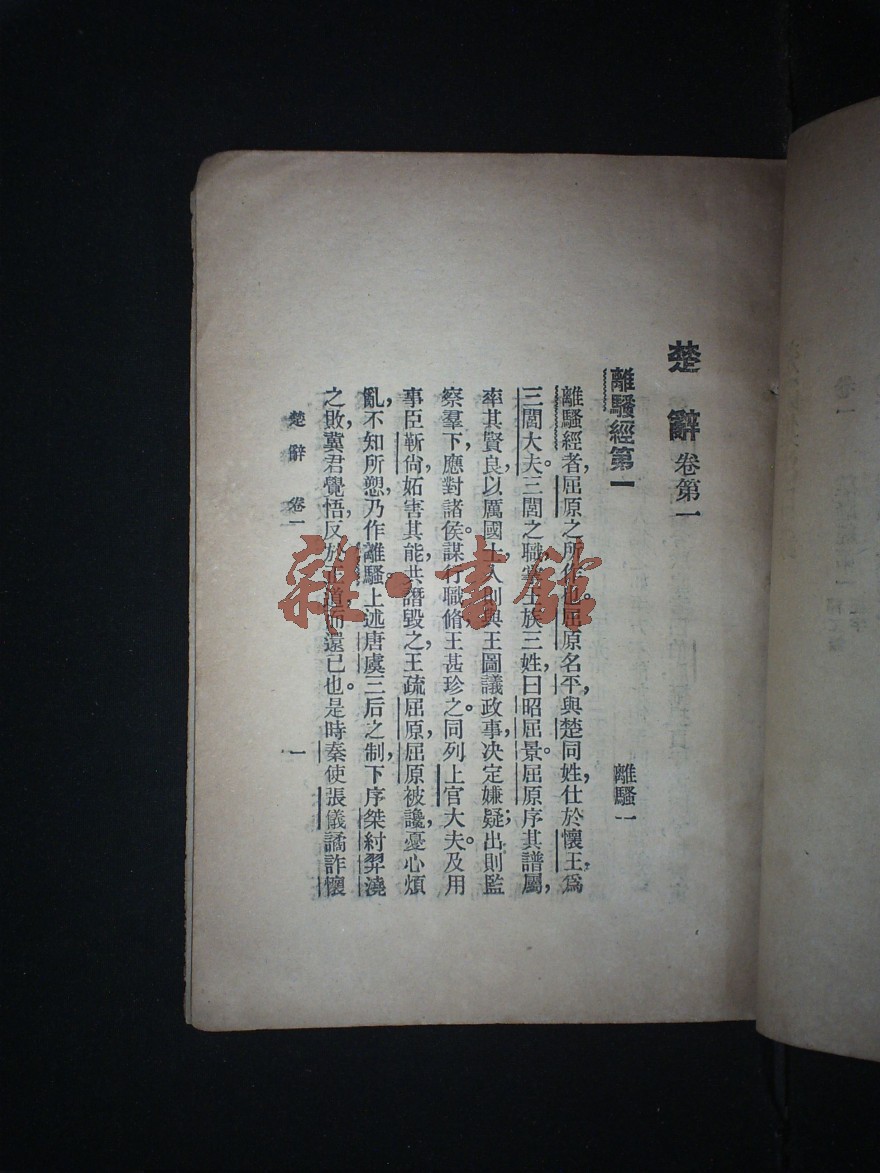 楚辭卷第一
離騷經第一
離騷一
離騷經者，屈原之所作也。屈原名平，與楚同姓，仕於懷王，爲
三閭大夫。三閭之職，掌王族三姓，曰昭屈景。屈原序其譜屬，
率其賢良，以厲國士。入則與王圖議政事，決定嫌疑；出則監
察羣下，應對諸侯。謀行職脩，王甚珍之。同列上官大夫及用
事臣靳尙妬害其能，共譖毀之。王疏屈原。屈原被讒，憂心煩
亂，不知所愬，乃作離騷。上述唐虞三后之制，下序桀紂羿澆
之敗，冀君覺悟，反於正道而還己也。是時秦使張儀譎詐懷
楚辭 卷一
一
雜·書館